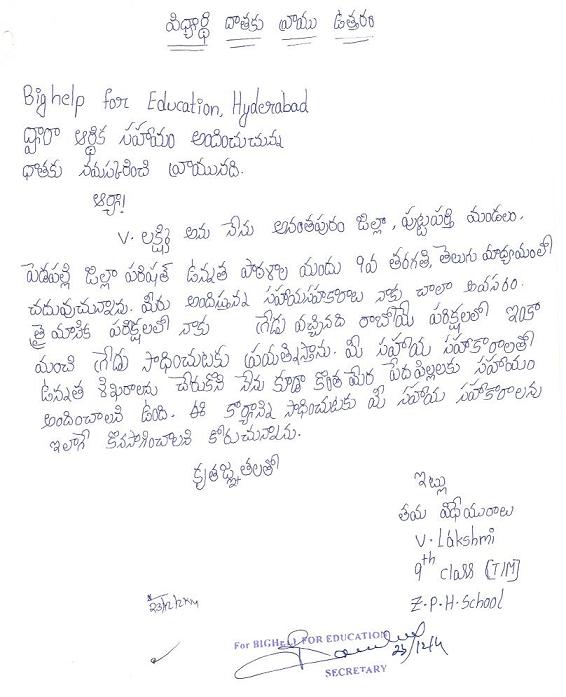 విధ్యార్థి దాతకు వ్రాయు ఉత్తరం
Bighelp for Education, Hyderabad
ద్వారా ఆర్థిక సహాయం అందించుచున్న
ధాతకు నమస్కరించి వ్రాయునది.
ఆర్యా!
V. లక్ష్మి అను నేను అనంతపురం జిల్లా, పుట్టపర్తి మండలం,
పెడపల్లి జిల్లా పరిషత్ ఉన్నత పాఠశాల యందు 9వ తరగతి, తెలుగు మాధ్యమంలో
చదువుచున్నాను. మీరు అందిస్తున్న సహాయసహకారాలు నాకు చాలా అవసరం.
త్రైమాసిక పరిక్షలలో నాకు గ్రేడు వచ్చినది రాబోయే పరిక్షలలో ఇంకా
మంచి గ్రేడు సాధించుటకు ప్రయత్నిస్తాను. మీ సహాయ సహకారాలతో
ఉన్నత శిఖరాలను చేరుకొని నేను కూడా కొంత మేర పేదపిల్లలకు సహాయం
అందించాలని ఉంది. ఈ కార్యాన్ని సాధించుటకు మీ సహాయ సహకారాలను
ఇలాగే కొనసాగించాలని కోరుచున్నాను.
కృతజ్ఞతలతో
ఇట్లు
తమ విధేయురాలు
V. Lakshmi
9th class [T/M]
Z.P.H. School
For BIGHELP FOR EDUCATION
23/12/11
SECRETARY